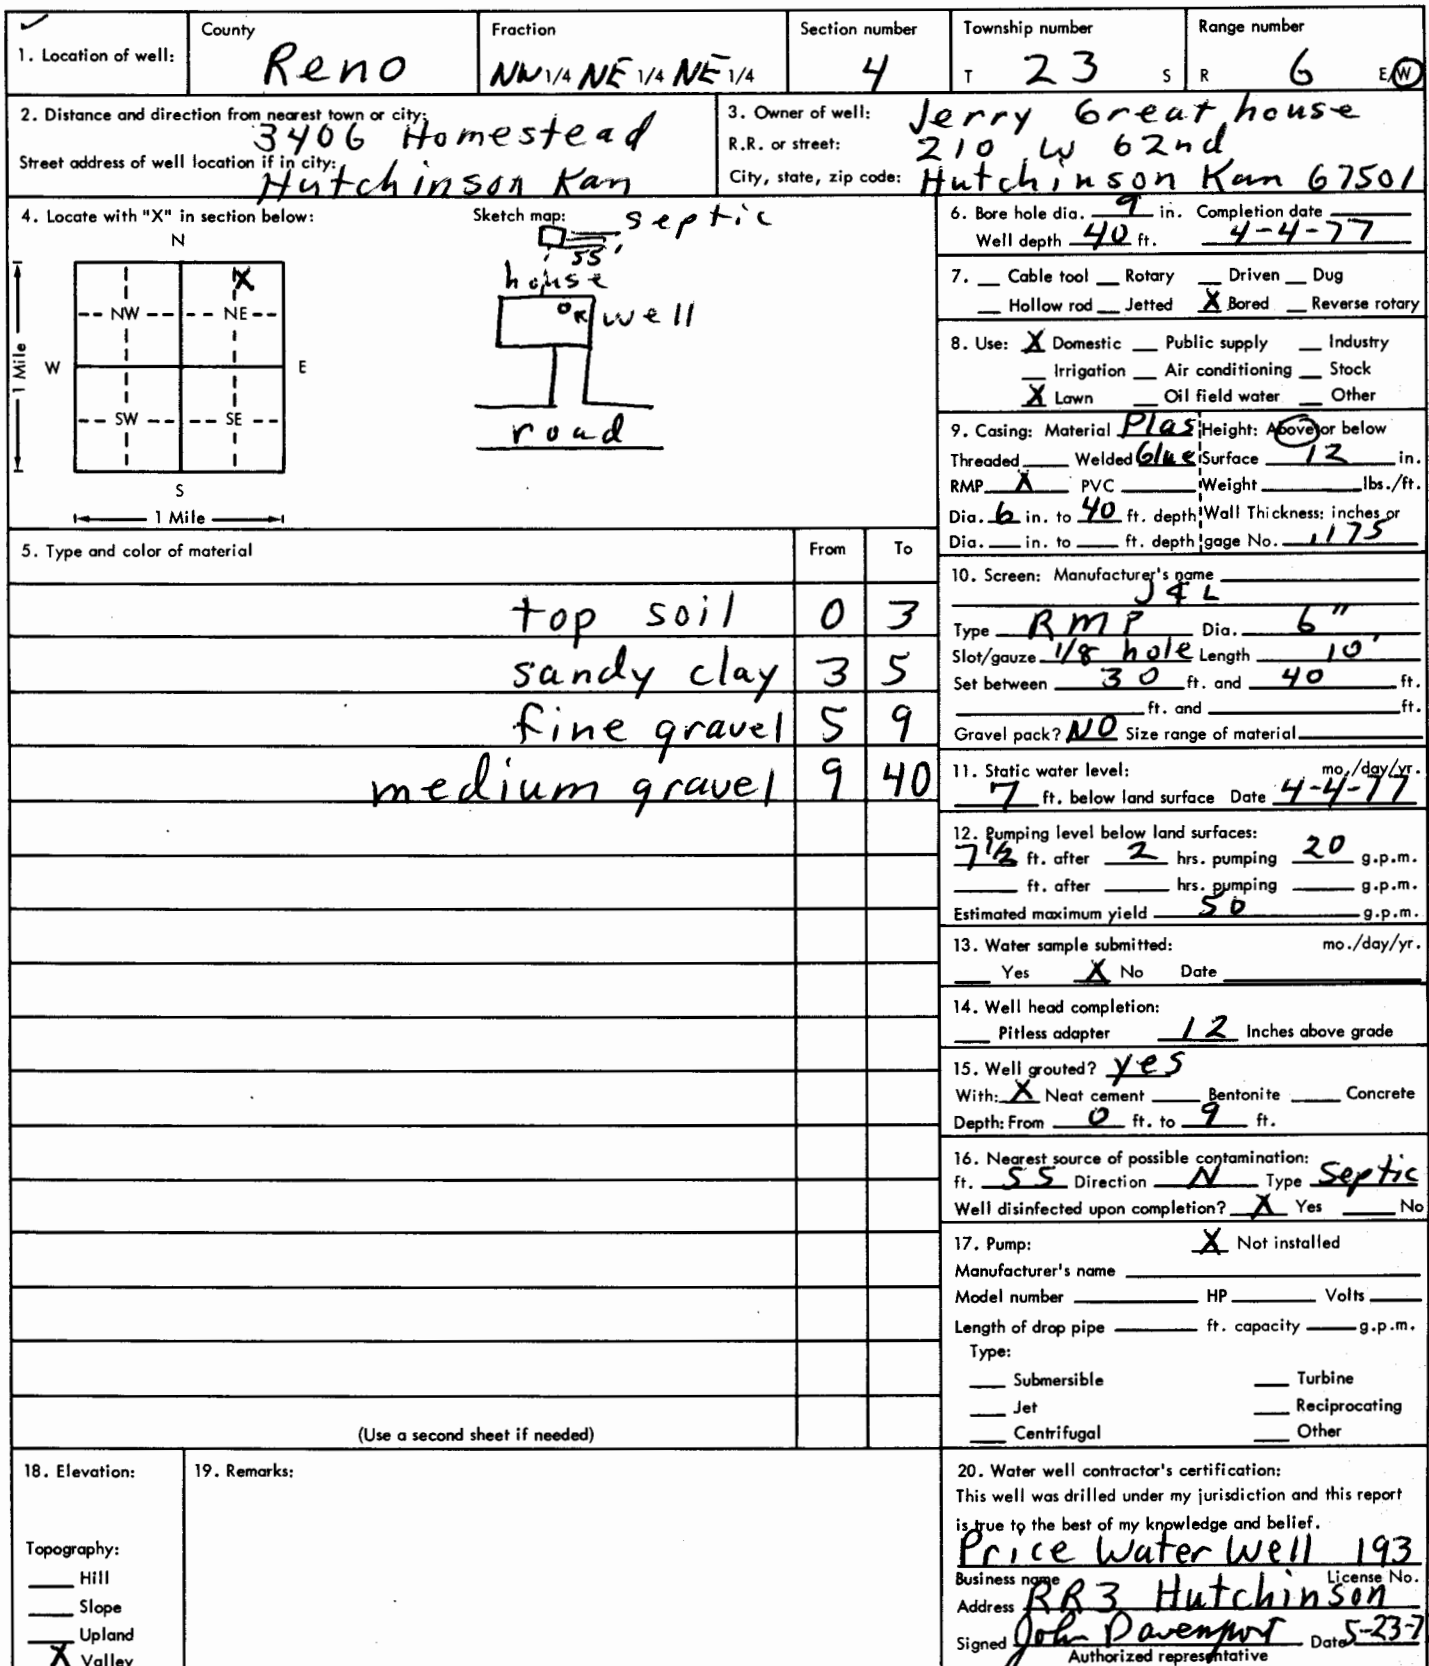 1. Location of well: County Reno Fraction NW 1/4 NE 1/4 NE 1/4 Section number 4 Township number T 23 S Range number R 6 E/W
2. Distance and direction from nearest town or city: 3406 Homestead
Street address of well location if in city: Hutchinson Kan
3. Owner of well: Jerry Greathouse
R.R. or street: 210 W 62nd
City, state, zip code: Hutchinson Kan 67501
4. Locate with "X" in section below:
N
X
NW NE
W E
SW SE
S
1 Mile
1 Mile
Sketch map:
septic
55'
house
well
road
5. Type and color of material From To
top soil 0 3
sandy clay 3 5
fine gravel 5 9
medium gravel 9 40
(Use a second sheet if needed)
6. Bore hole dia. 9 in. Completion date
Well depth 40 ft. 4-4-77
7. Cable tool Rotary Driven Dug
Hollow rod Jetted X Bored Reverse rotary
8. Use: X Domestic Public supply Industry
Irrigation Air conditioning Stock
X Lawn Oil field water Other
9. Casing: Material Plas Height: Above or below
Threaded Welded Glue Surface 12 in.
RMP X PVC Weight lbs./ft.
Dia. 6 in. to 40 ft. depth Wall Thickness: inches or
Dia. in. to ft. depth gage No. .1175
10. Screen: Manufacturer's name
J & L
Type RMP Dia. 6"
Slot/gauze 1/8 hole Length 10'
Set between 30 ft. and 40 ft.
ft. and ft.
Gravel pack? NO Size range of material
11. Static water level: mo./day/yr.
7 ft. below land surface Date 4-4-77
12. Pumping level below land surfaces:
7 1/2 ft. after 2 hrs. pumping 20 g.p.m.
ft. after hrs. pumping g.p.m.
Estimated maximum yield 50 g.p.m.
13. Water sample submitted: mo./day/yr.
Yes X No Date
14. Well head completion:
Pitless adapter 12 Inches above grade
15. Well grouted? yes
With: X Neat cement Bentonite Concrete
Depth: From 0 ft. to 9 ft.
16. Nearest source of possible contamination:
ft. 55 Direction N Type Septic
Well disinfected upon completion? X Yes No
17. Pump: X Not installed
Manufacturer's name
Model number HP Volts
Length of drop pipe ft. capacity g.p.m.
Type:
Submersible Turbine
Jet Reciprocating
Centrifugal Other
18. Elevation:
Topography:
Hill
Slope
Upland
X Valley
19. Remarks:
20. Water well contractor's certification:
This well was drilled under my jurisdiction and this report
is true to the best of my knowledge and belief.
Price Water Well 193
Business name License No.
Address RR3 Hutchinson
Signed John Davenport Date 5-23-7
Authorized representative